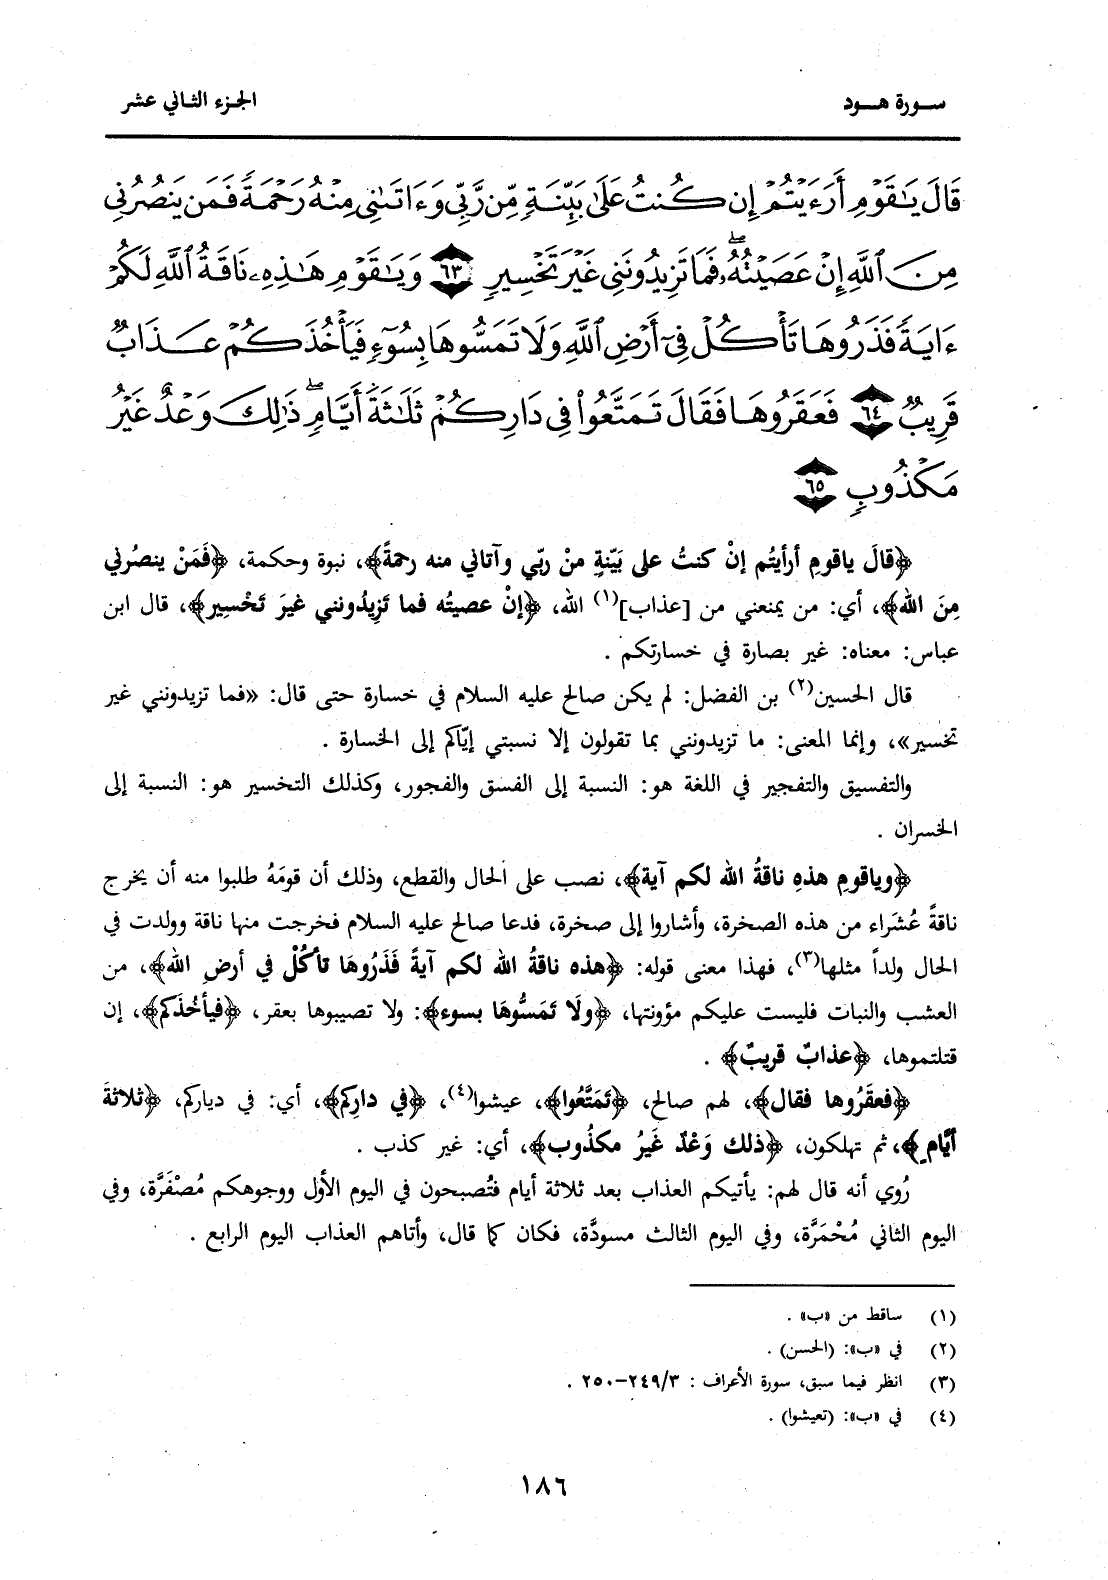 سورة هود
الجزء الثاني عشر
قَالَ يَـٰقَوْمِ أَرَءَيْتُمْ إِن كُنتُ عَلَىٰ بَيِّنَةٍ مِّن رَّبِّى وَءَاتَىٰنِى مِنْهُ رَحْمَةً فَمَن يَنصُرُنِى
مِنَ ٱللَّهِ إِنْ عَصَيْتُهُۥۖ فَمَا تَزِيدُونَنِى غَيْرَ تَخْسِيرٍ ٦٣ وَيَـٰقَوْمِ هَـٰذِهِۦ نَاقَةُ ٱللَّهِ لَكُمْ
ءَايَةً فَذَرُوهَا تَأْكُلْ فِىٓ أَرْضِ ٱللَّهِ وَلَا تَمَسُّوهَا بِسُوٓءٍ فَيَأْخُذَكُمْ عَذَابٌ
قَرِيبٌ ٦٤ فَعَقَرُوهَا فَقَالَ تَمَتَّعُوا۟ فِى دَارِكُمْ ثَلَـٰثَةَ أَيَّامٍۖ ذَٰلِكَ وَعْدٌ غَيْرُ
مَكْذُوبٍ ٦٥
﴿قالَ ياقومِ أرأيتُم إنْ كنتُ على بَيّنةٍ منْ ربّي وآتاني منه رحمةً﴾، نبوة وحكمة، ﴿فَمَنْ ينصُرني
مِنَ الله﴾، أي: من يمنعني من [عذاب](١) الله، ﴿إنْ عصيتُه فما تَزِيدُونني غيرَ تَخْسِير﴾، قال ابن
عباس: معناه: غير بصارة في خسارتكم .
قال الحسين(٢) بن الفضل: لم يكن صالح عليه السلام في خسارة حتى قال: «فما تزيدونني غير
تخسير»، وإنما المعنى: ما تزيدونني بما تقولون إلا نسبتي إيّاكم إلى الخسارة .
والتفسيق والتفجير في اللغة هو: النسبة إلى الفسق والفجور، وكذلك التخسير هو: النسبة إلى
الخسران .
﴿وياقومِ هذهِ ناقةُ الله لكم آية﴾، نصب على الحال والقطع، وذلك أن قومَهُ طلبوا منه أن يخرج
ناقةً عُشَراء من هذه الصخرة، وأشاروا إلى صخرة، فدعا صالح عليه السلام فخرجت منها ناقة وولدت في
الحال ولداً مثلها(٣)، فهذا معنى قوله: ﴿هذه ناقةُ الله لكم آيةً فَذَرُوهَا تأكُلْ في أرضِ الله﴾، من
العشب والنبات فليست عليكم مؤونتها، ﴿ولَا تَمَسُّوهَا بسوء﴾: ولا تصيبوها بعقر، ﴿فيأخُذَكم﴾، إن
قتلتموها، ﴿عذابٌ قريبٌ﴾ .
﴿فعقَرُوها فقال﴾، لهم صالح، ﴿تَمَتَّعُوا﴾، عيشوا(٤)، ﴿في دارِكم﴾، أي: في دياركم، ﴿ثلاثةَ
أيَّامٍ﴾، ثم تهلكون، ﴿ذلك وَعْدٌ غَيرُ مكذُوب﴾، أي: غير كذب .
رُوي أنه قال لهم: يأتيكم العذاب بعد ثلاثة أيام فتُصبحون في اليوم الأول ووجوهكم مُصْفَرَّة، وفي
اليوم الثاني مُحْمَرَّة، وفي اليوم الثالث مسودَّة، فكان كما قال، وأتاهم العذاب اليوم الرابع .
(١) ساقط من «ب» .
(٢) في «ب»: (الحسن) .
(٣) انظر فيما سبق، سورة الأعراف : ٣/٢٤٩-٢٥٠ .
(٤) في «ب»: (تعيشوا) .
١٨٦